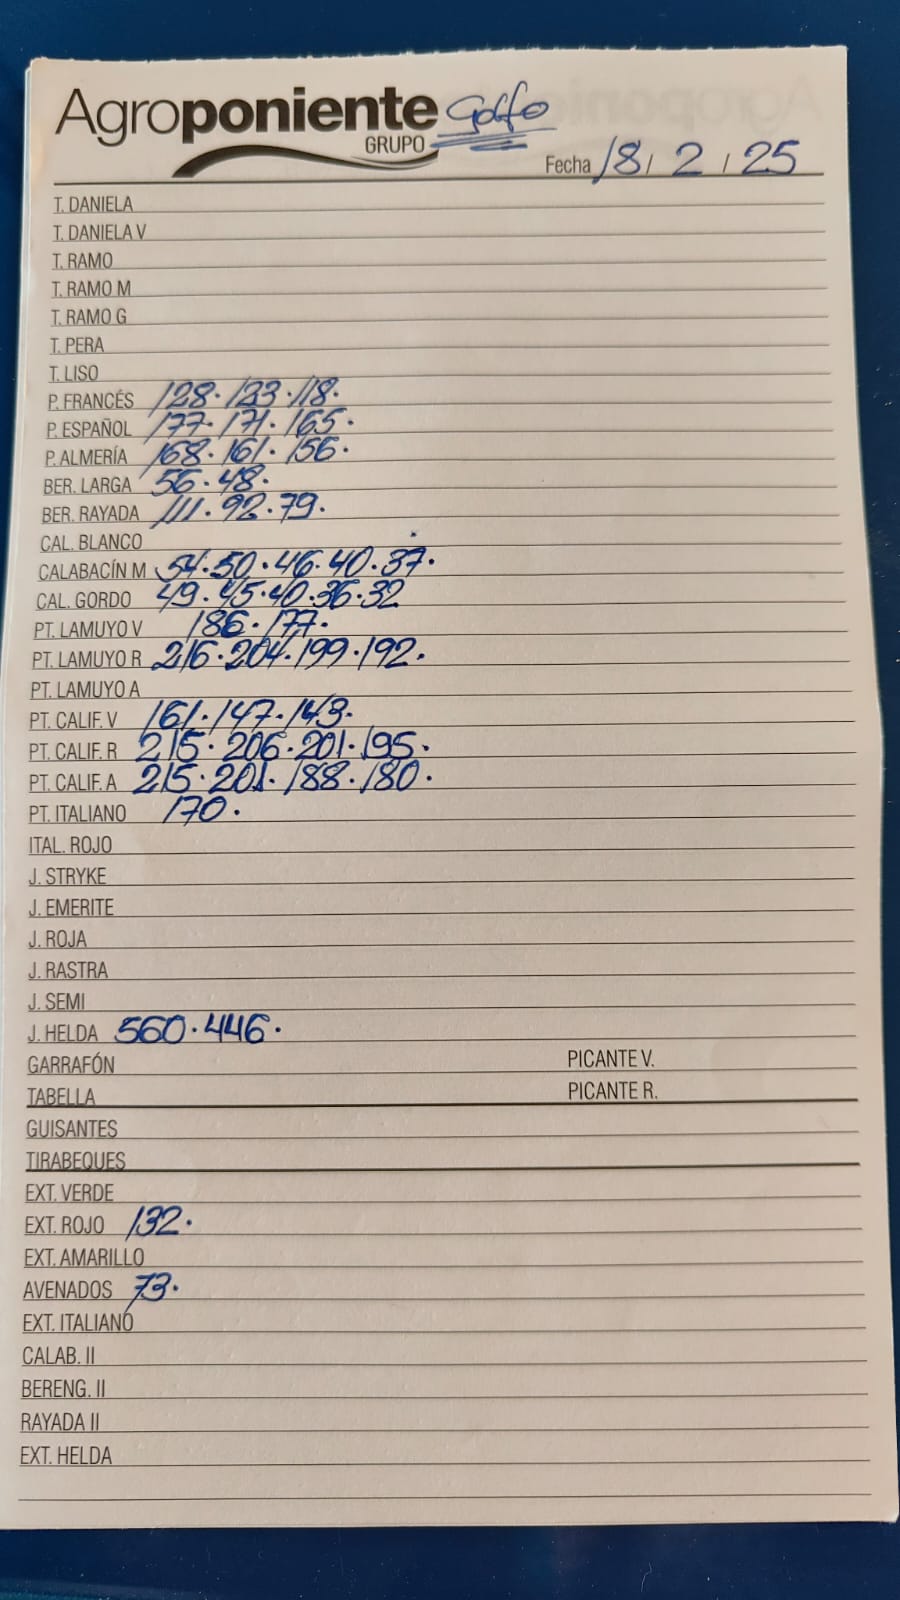 Agroponiente Golfo
GRUPO
Fecha 18 / 2 / 25
T. DANIELA
T. DANIELA V
T. RAMO
T. RAMO M
T. RAMO G
T. PERA
T. LISO
P. FRANCÉS 128. 123. 118.
P. ESPAÑOL 177. 171. 165.
P. ALMERÍA 168. 161. 156.
BER. LARGA 56. 48.
BER. RAYADA 111. 92. 79.
CAL. BLANCO
CALABACÍN M 54. 50. 46. 40. 37.
CAL. GORDO 49. 45. 40. 36. 32
PT. LAMUYO V 186. 177.
PT. LAMUYO R 216. 204. 199. 192.
PT. LAMUYO A
PT. CALIF. V 161. 147. 143.
PT. CALIF. R 215. 206. 201. 195.
PT. CALIF. A 215. 201. 188. 180.
PT. ITALIANO 170.
ITAL. ROJO
J. STRYKE
J. EMERITE
J. ROJA
J. RASTRA
J. SEMI
J. HELDA 560. 446.
GARRAFÓN PICANTE V.
TABELLA PICANTE R.
GUISANTES
TIRABEQUES
EXT. VERDE
EXT. ROJO 132.
EXT. AMARILLO
AVENADOS 73.
EXT. ITALIANO
CALAB. II
BERENG. II
RAYADA II
EXT. HELDA